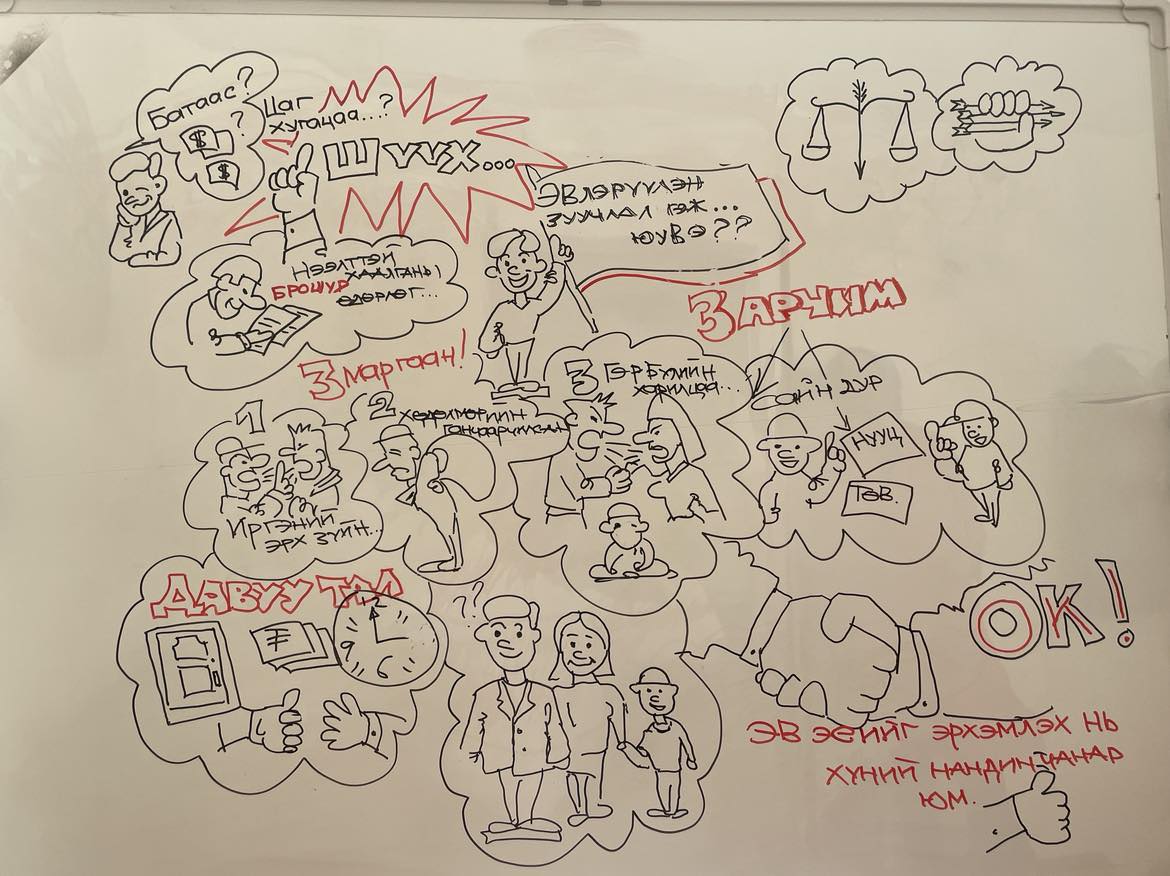 Батаас?
?
$
$
Цаг
хугацаа...?
ШҮҮХ...
ЭВЛЭРҮҮЛЭН
ЗУУЧЛАЛ ГЭЖ...
ЮУВЭ??
НЭЭЛТТЭЙ
ХААЛГАНЫ
БРОШУР
ӨДӨРЛӨГ...
3 АРЧИМ
3 маргаан!
1
ИРГЭНИЙ
ЭРХ ЗҮЙН...
2
ХӨДӨЛМӨРИЙН
3 ГЭР БҮЛИЙН
ХАРИЛЦАА...
САЙН ДУР
НУУЦ
ТӨВ.
ДАВУУ ТАЛ
₮
12
3
6
9
??
OK!
ЭВ ЭЕИЙГ ЭРХЭМЛЭХ НЬ
ХҮНИЙ НАНДИН ЧАНАР
ЮМ.